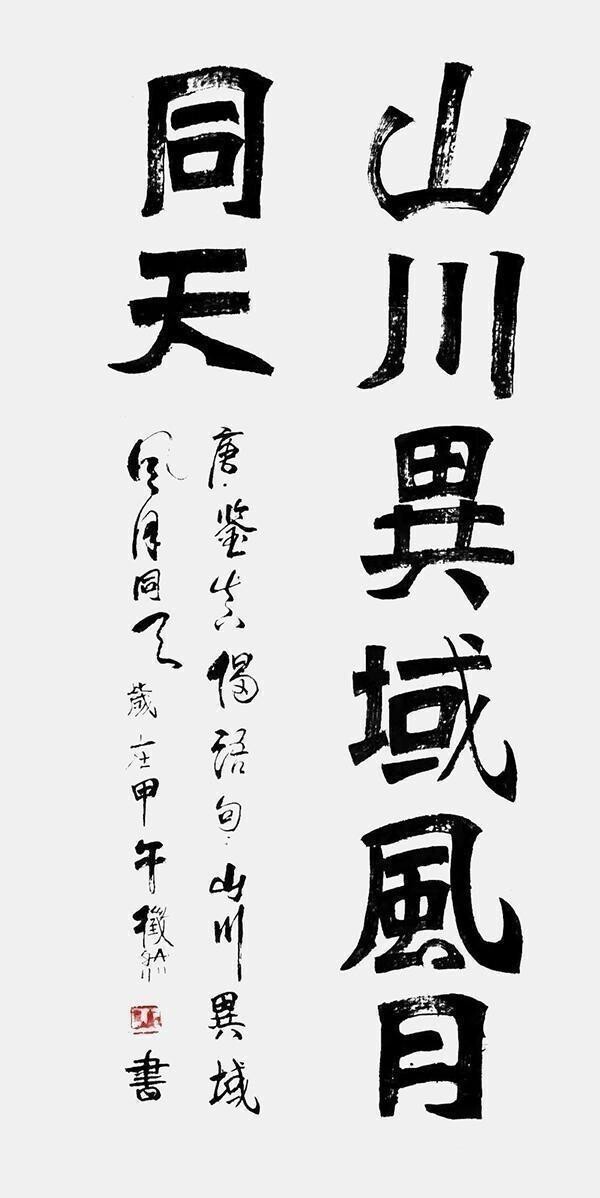 山川異域風月
同天
唐鉴真偈語句山川異域
風月同天歲在甲午 書